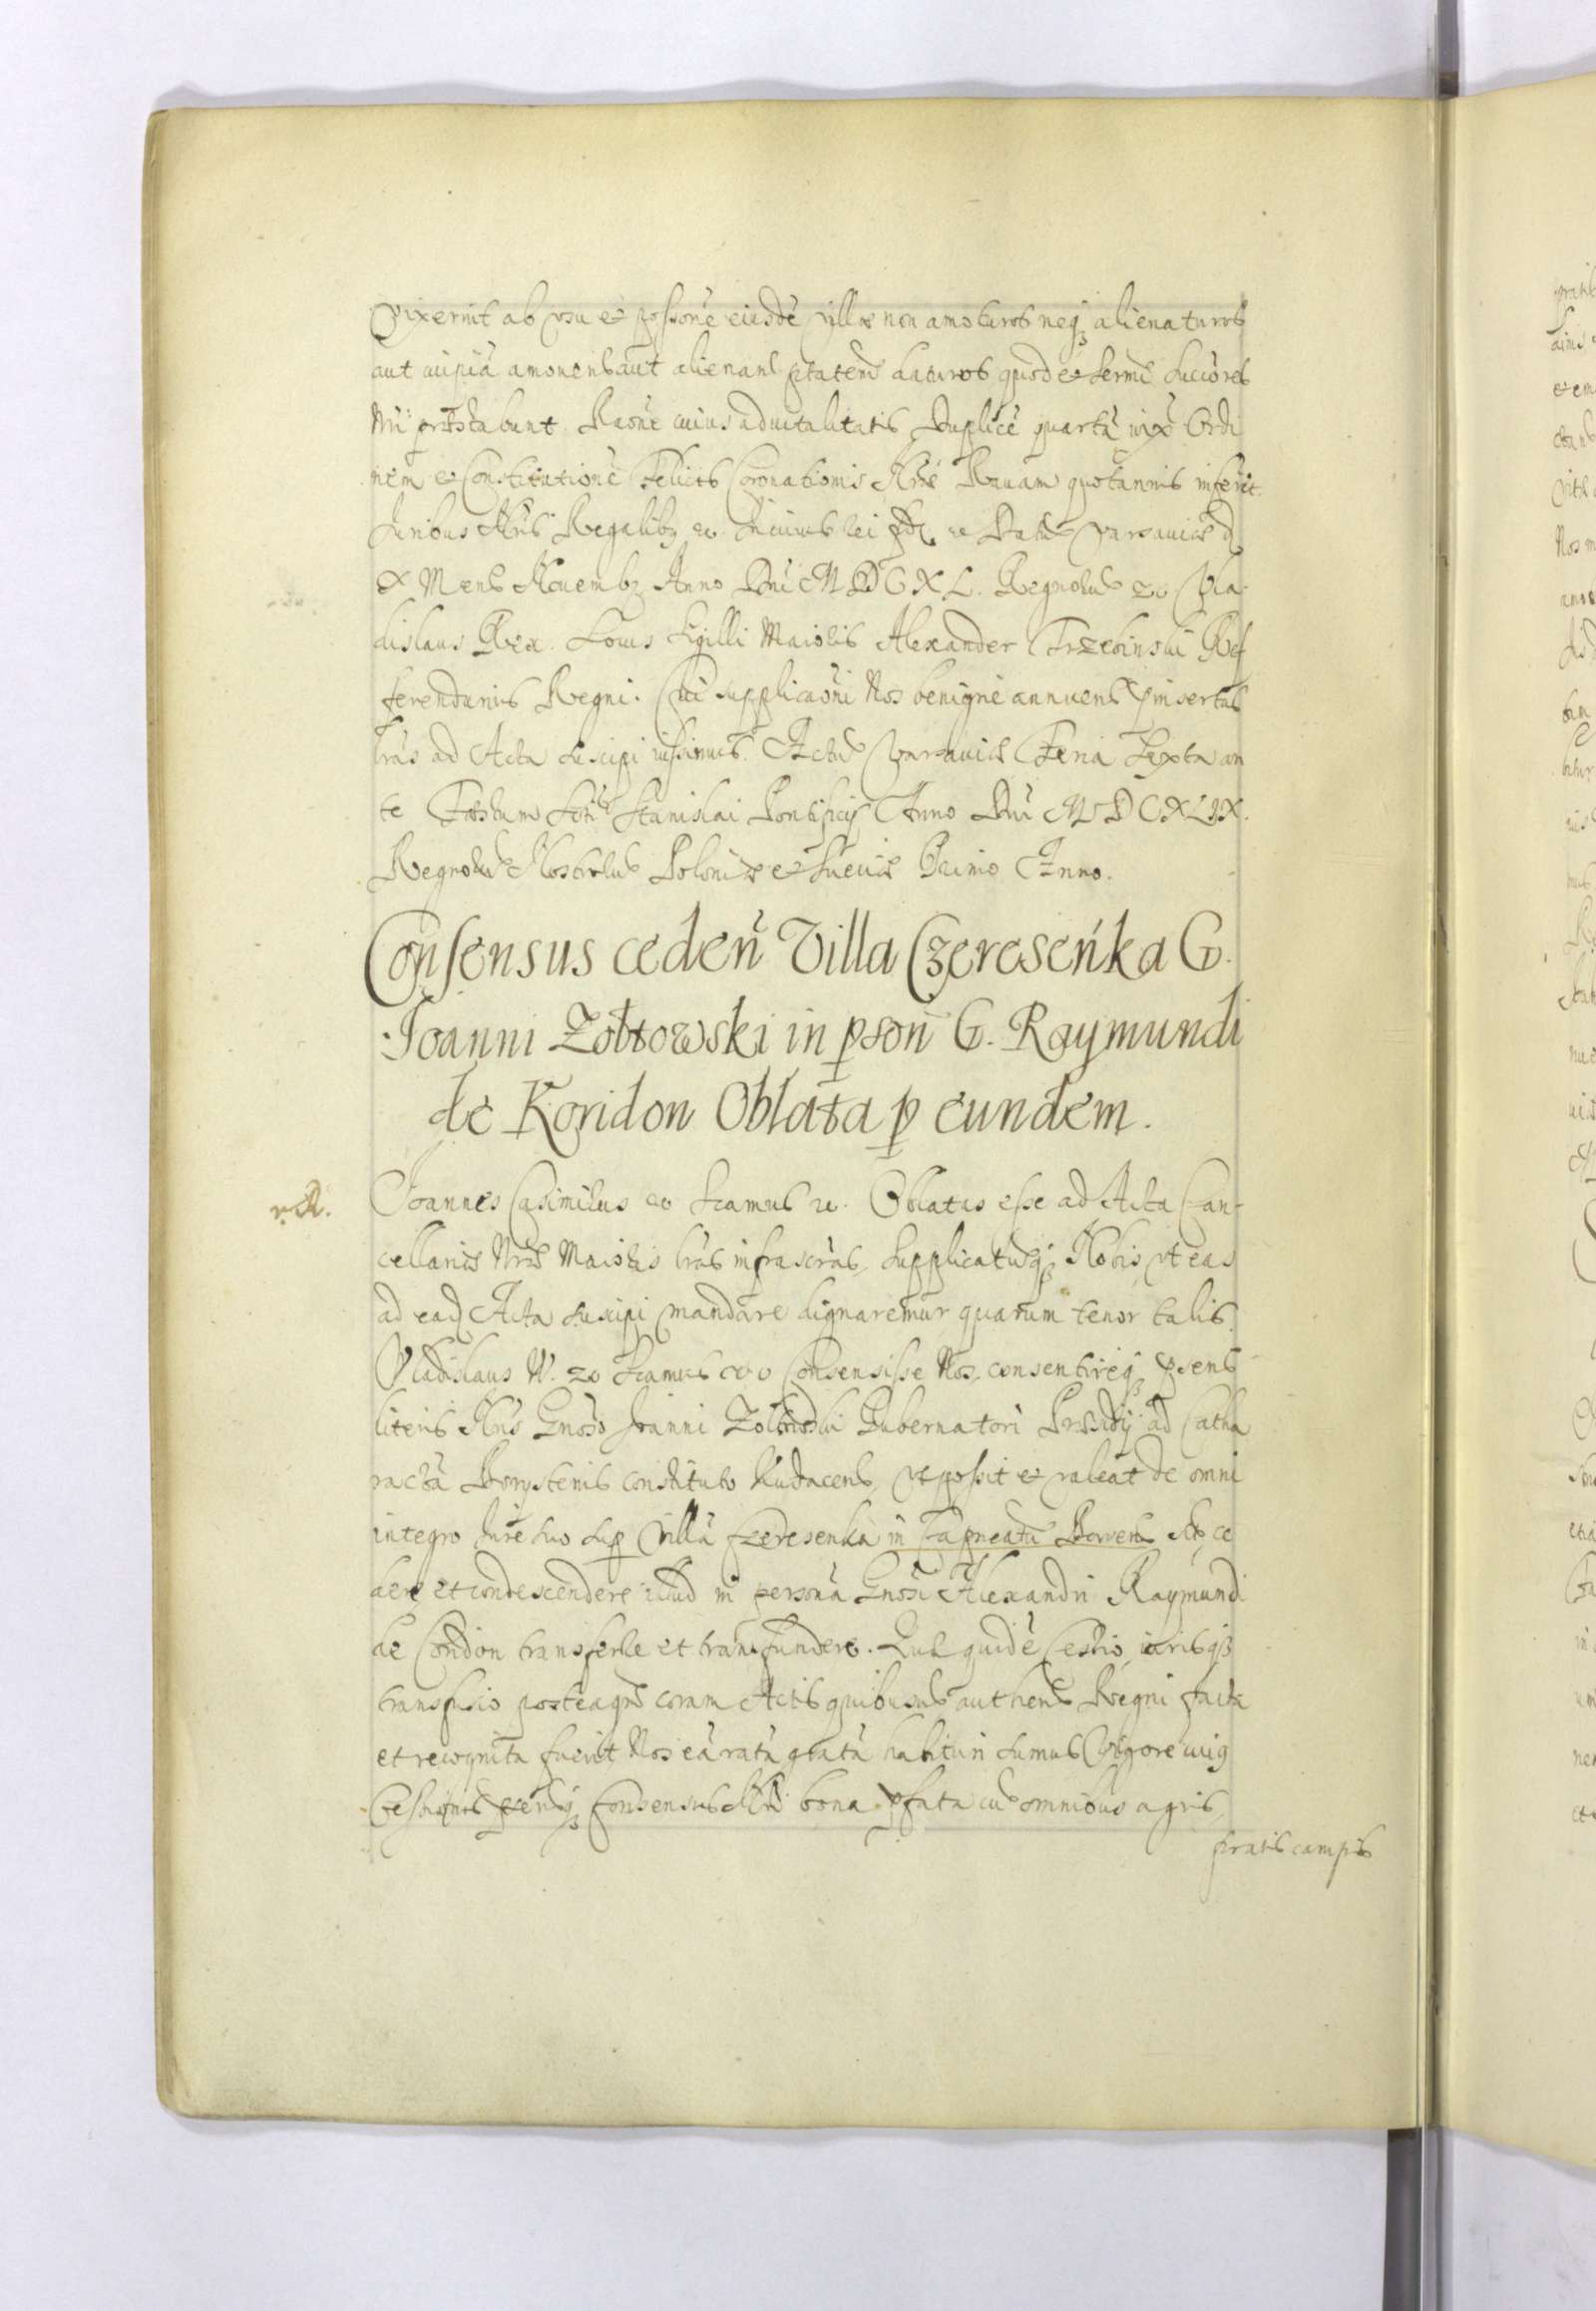 Vixerint ab usu et possõne eiusdẽ Villæ non amoturos neq; alienaturos
aut cuipiã amovens aut alienans ptatem daturos quod et Sermi Successores
Nri præstabunt. Raõne cuius advitalitatis Duplicẽ quartã iuxa Ordi
nem et Constitutionẽ Felicis Coronationis Nræ Ravam quotannis inferet.
Juribus Nris Regalibq etc. In cuius rei fidẽ etc Datum Varsaviæ d
X Mens Novembq Anno Dni MDCXL. Regnorum etc Vla-
dislaus Rex. Locus Sigilli Maioris Alexander Trzebinski Ref
ferendarius Regni. Cui supplicaõni Nos benigne annuens pinsertas
lras ad Acta suscipi iussimus. Actum Varsaviæ Feria Sexta an
te Festum Scti Stanislai Pontificis Anno Dni MDCXLIX.
Regnorum Nostrorum Poloniæ et Sueciæ Primo Anno.
Consensus cedeñ Villa Czereseńka G.
Joanni Zołtowski in psoñ G. Raymundi
de Koridon Oblata p eundem.
v. R.
Joannes Casimirus etc Scamus etc. Oblatas esse ad Acta Can-
cellariæ Nræ Maioris lras infrascras, supplicatumq; Nobis ut eas
ad ead Acta suscipi mandare dignaremur quarum tenor talis.
Vladislaus IV. etc Scamus etc Consensisse Nos, consentireq; psens
literis Nris Gnoso Joanni Zołtowski Gubernatori Præsidij ad Catha
ractã Borystenis constituto Kudacens, ut possit et valeat de omni
integro Jure suo sup Villã Czeresenka in Capneatu Boweñ Nro ce
dere et condescendere illud in personã Gnosi Alexandri Raymundi
de Coridon transferre et transfundere. Quæ quidẽ Cessio, iurisq;
transfusio posteaqm coram Actis quibusvis authens Regni facta
et recognita fuerit Nos eã ratã gratã habituri sumus Vigore cuiq
Cessionis psentisq; Consensus Nri bona pfata cum omnibus agris,
pratis campis